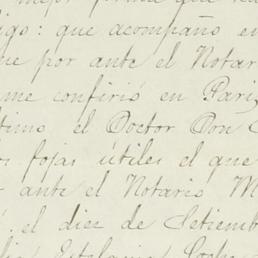 mejor forma que
digo: que acompaño en
me por ante el Notar
me confirió en Pari
timo el Doctor Don
fojas útiles el que
ante el Notario M
el diez de Setiemb